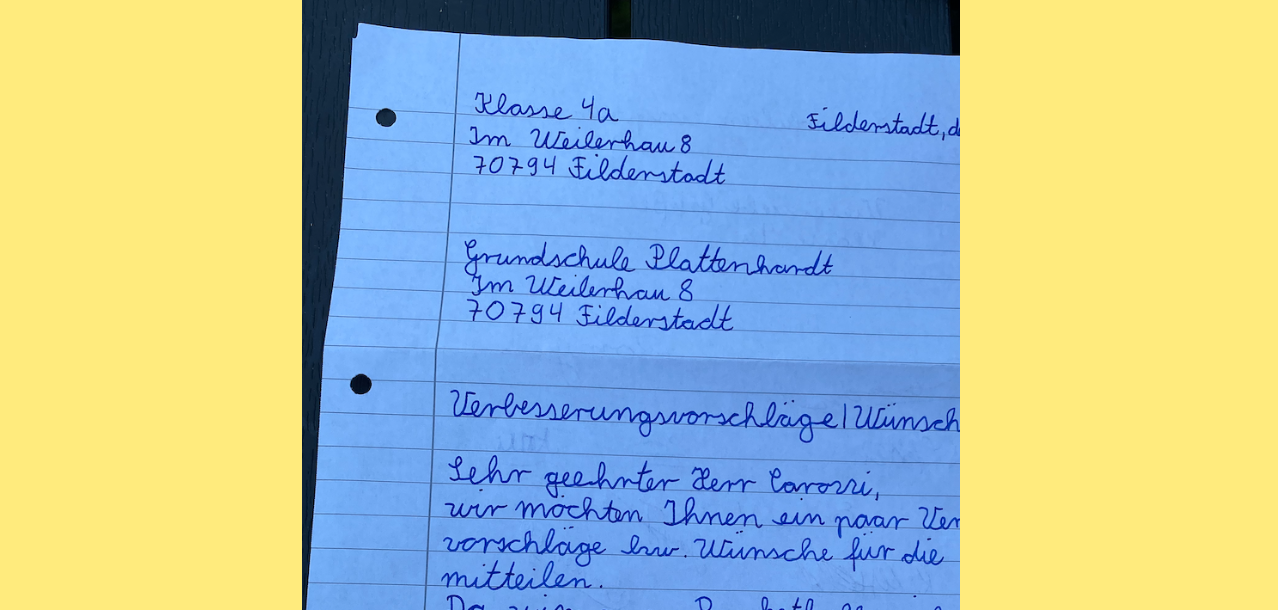 Klasse 4a
Filderstadt, d
Im Weilerhau 8
70794 Filderstadt
Grundschule Plattenhardt
Im Weilerhau 8
70794 Filderstadt
Verbesserungsvorschläge/Wünsch
Sehr geehrter Herr Carozzi,
wir möchten Ihnen ein paar Ver
vorschläge bzw. Wünsche für die
mitteilen.